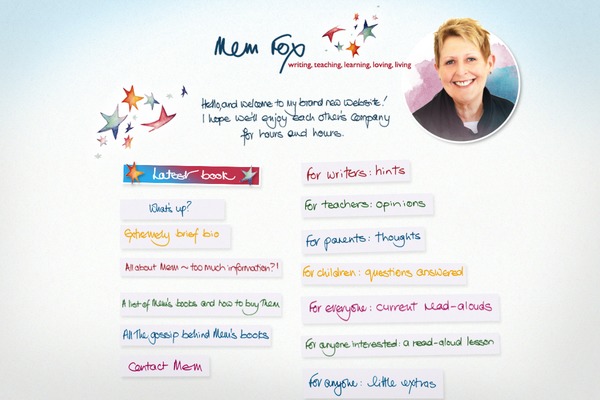 Mem Fox
writing, teaching, learning, loving, living
Hello, and welcome to my brand new website!
I hope we'll enjoy each other's company
for hours and hours.
Latest book
What's up?
Extremely brief bio
All about Mem ~ too much information?!
A list of Mem's books and how to buy them
All the gossip behind Mem's books
Contact Mem
For writers: hints
For teachers: opinions
For parents: thoughts
For children: questions answered
For everyone: current read-alouds
For anyone interested: a read-aloud lesson
For anyone: little extras